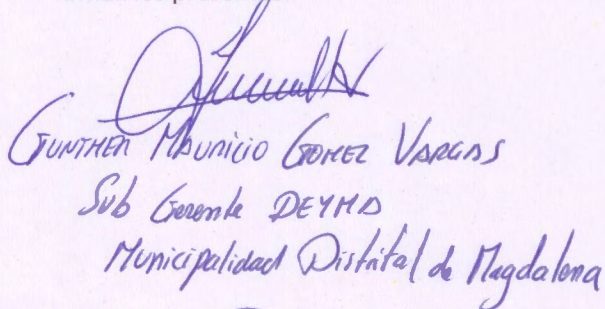 GUNTHER MAURICIO GOMEZ VARGAS
Sub Gerente DEYMA
Municipalidad Distrital de Magdalena